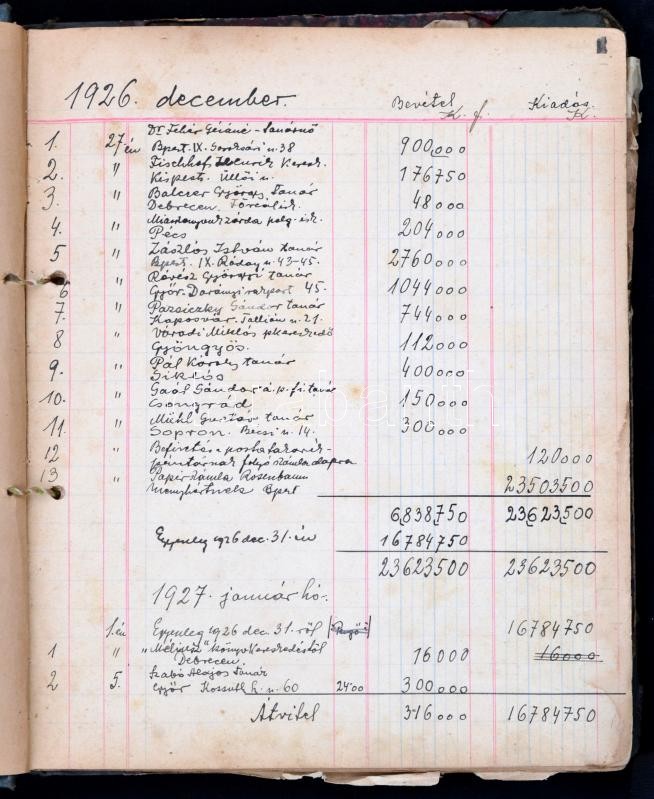 1926. december.
Bevétel Kiadás
K. f. K.
1. 27-én Dr Fehér Gézáné - tanárnő
Bpest. IX. Soroksári u. 38 900000
2. " Fischhof Henrik keresk.
Kispest. Üllői u. 176750
3. " Balczer György tanár
Debrecen. Főreálisk. 48000
4. " polg. isk.
Pécs 204000
5 " Zászlós István tanár
Bpest. IX. Ráday u. 43-45. 2760000
6 " Révész György tanár
Győr. Darányi 45. 1044000
7. " Pazsiczky Sándor tanár
Kaposvár. Tallián u. 21. 744000
8 " Váradi Miklós
Gyöngyös. 112000
9. " Pál Károly tanár
Siklós 400000
10. " Gaál Sándor á. p. fi. tanár
Csongrád 150000
11. " Mühl Gusztáv tanár
Sopron. Bécsi u. 14. 300000
12 " Befizetés a postatakarék-
pénztárnak folyószámla alapra 120000
13 " Papírszámla Rosenbaum
Bpest 23503500
6838750 23623500
Egyenleg 1926 dec. 31. én 16784750
23623500 23623500
1927. január hó.
1. én Egyenleg 1926 dec. 31. ről Pengő 16784750
1 " "Méliusz" könyvkereskedéstől
Debrecen 16000 16000
2 5. Szabó Alajos tanár
Győr Kossuth L. u. 60 2400 300000
Átvitel 316000 16784750